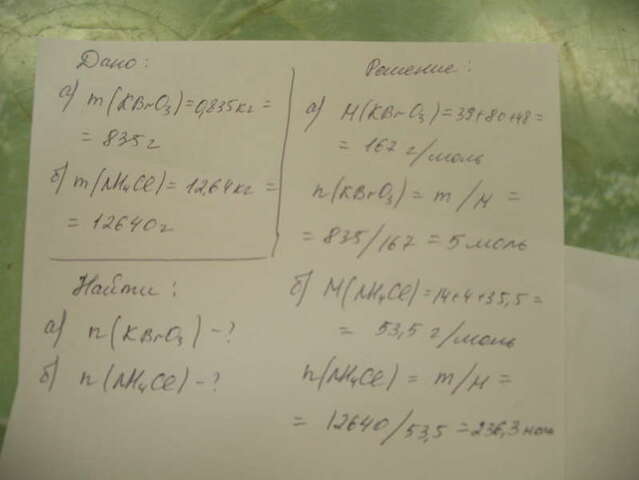 Дано:
а) m(KBrO3)=0,835кг=
= 835г
б) m(NH4Cl)= 12,64кг =
= 12640г
Найти:
а) n(KBrO3) -?
б) n(NH4Cl) -?
Решение:
а) M(KBrO3)=39+80+48=
= 167 г/моль
n(KBrO3) = m/M =
= 835/167 = 5 моль
б) M(NH4Cl)=14+4+35,5=
= 53,5 г/моль
n(NH4Cl) = m/M =
= 12640/53,5 =236,3 моль